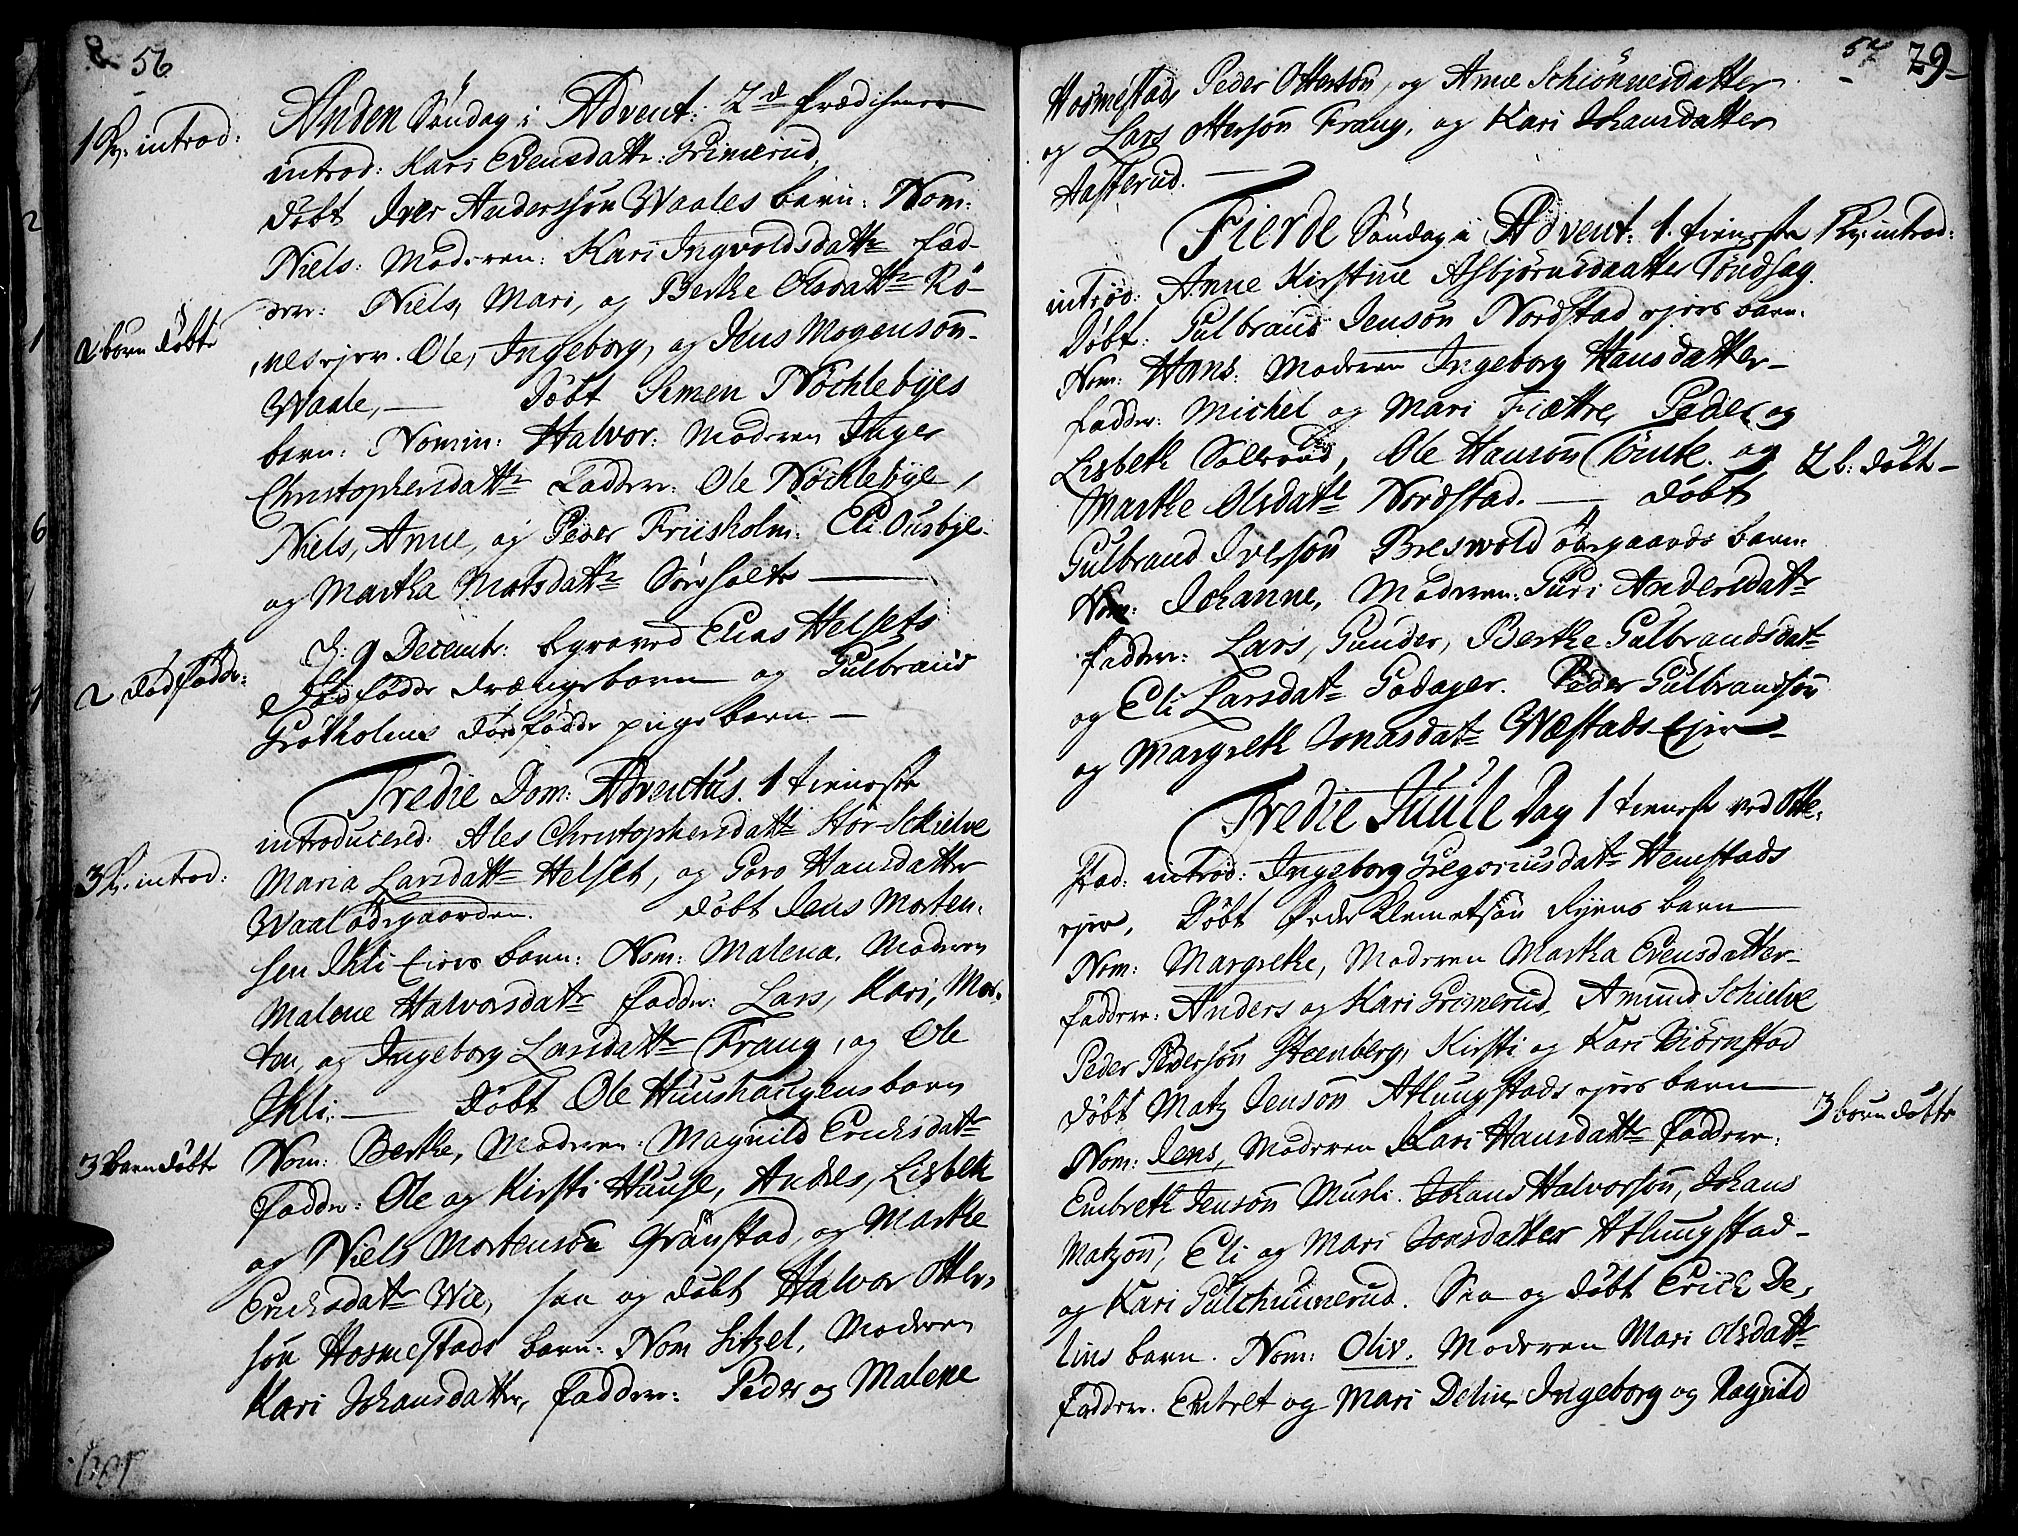 56
1 K. introd:
Anden Søndag i Advent: 2d
introd: Kari Evensdattr: Grimerud,
døbt Iver Anderssøn Waales barn: Nom:
Niels: Moderen: Kari Ingvoldsdattr fad-
dere: Niels, Mari, og Berthe Olsdattr Rö-
2 børn døbte
nes ejer. Ole, Ingeborg, og Jens Mogensøn
Waale, — Døbt Simen Nöchlebyes
barn: Nomin: Halvor: Moderen Inger
Christophersdattr Faddere: Ole Nöchlebye,
Niels, Anne, og Peder Friisholm: Eli Ousbye
og Martha Matsdattr Sörholte —
D: 9 Decembr: begraved Elias Helsets
2 dødfødde:
dødfødde drængebarn og Gulbrand
Grötholms dødfødde pigebarn —
Tredie Dom: Adventus. 1 tieneste
introducered: Ales Christophersdattr Stör-Schielve
3 K. introd:
Maria Larsdattr Helset, og Goro Hansdatter
Waalödegaarden. døbt Jens Morten-
sen Ihli Eiers barn: Nom: Malena, Moderen
Malene Halvorsdattr faddere: Lars, Kari, Mor-
ten, og Ingeborg Larsdattr Frang, og Ole
Ihli. — døbt Ole Huushaugens barn
3 børn døbte
Nom: Berthe, Moderen: Magnild Ericksdattr
faddere: Ole og Kirsti Huuse, Anders, Lisbeth
og Niels Mortensøn Grönstad, og Marthe
Ericksdattr Wie, saa og døbt Halvor Otter-
søn Hosmestads barn: Nom Sitzel, Moderen
Kari Johansdatter, faddere: Peder og Malene
29
Hosmestad, Peder Ottersøn, og Anne Schiönnersdatter
og Lars Ottersøn Frang, og Kari Johansdatter
Aasterud. —
Fierde Søndag i Advent: 1. tieneste
1 K: introd:
introd: Anne Kirstine Asbjörnsdaatter Töndsag
Døbt: Gulbrand Jensøn Nordstad ejers barn:
Nom: Hans: Moderen Ingeborg Hansdatter-
faddere: Michel og Mari Fiættre, Peder og
Lisbeth Solbrad, Ole Hansøn Tömte. og
2 b: døbt —
Marthe Olsdattr Nordstad. — døbt
Gulbrand Iversøn Breswold ödegaards barn:
Nom: Johanne, Moderen: Guri Andersdattr
faddere: Lars, Gunder, Berthe Gulbrandsdatr
og Eli Larsdattr Godager. Peder Gulbrandsøn
og Margreth Jonasdatr Wæstads Ejer —
Tredie Juule Dag 1 tieneste ved Otte-
stad: introd: Ingeborg Gregoriusdatr Hemstads
ejer, Døbt Peder Clemetsøn Ryens barn
Nom: Margrethe, Moderen Martha Evensdatter-
faddere: Anders og Kari Grimerud, Amund Schielve
Peder Pedersøn Steenberg, Kirsti og Kari Biörnstad
døbt Matz Jensøn Atlungstads ejers barn
3 børn døbte
Nom: Jens, Moderen Kari Hansdattr faddere:
Embreth Jensøn Musli. Johans Halvorsøn, Johans
Matzøn, Eli og Mari Jonsdatter Atlungstad-
og Kari Gulchuunerud. Saa og døbt Erich De-
lins barn. Nom: Oliv. Moderen Mari Olsdattr
faddere. Embret og Mari Delin, Ingeborg og Ragnild